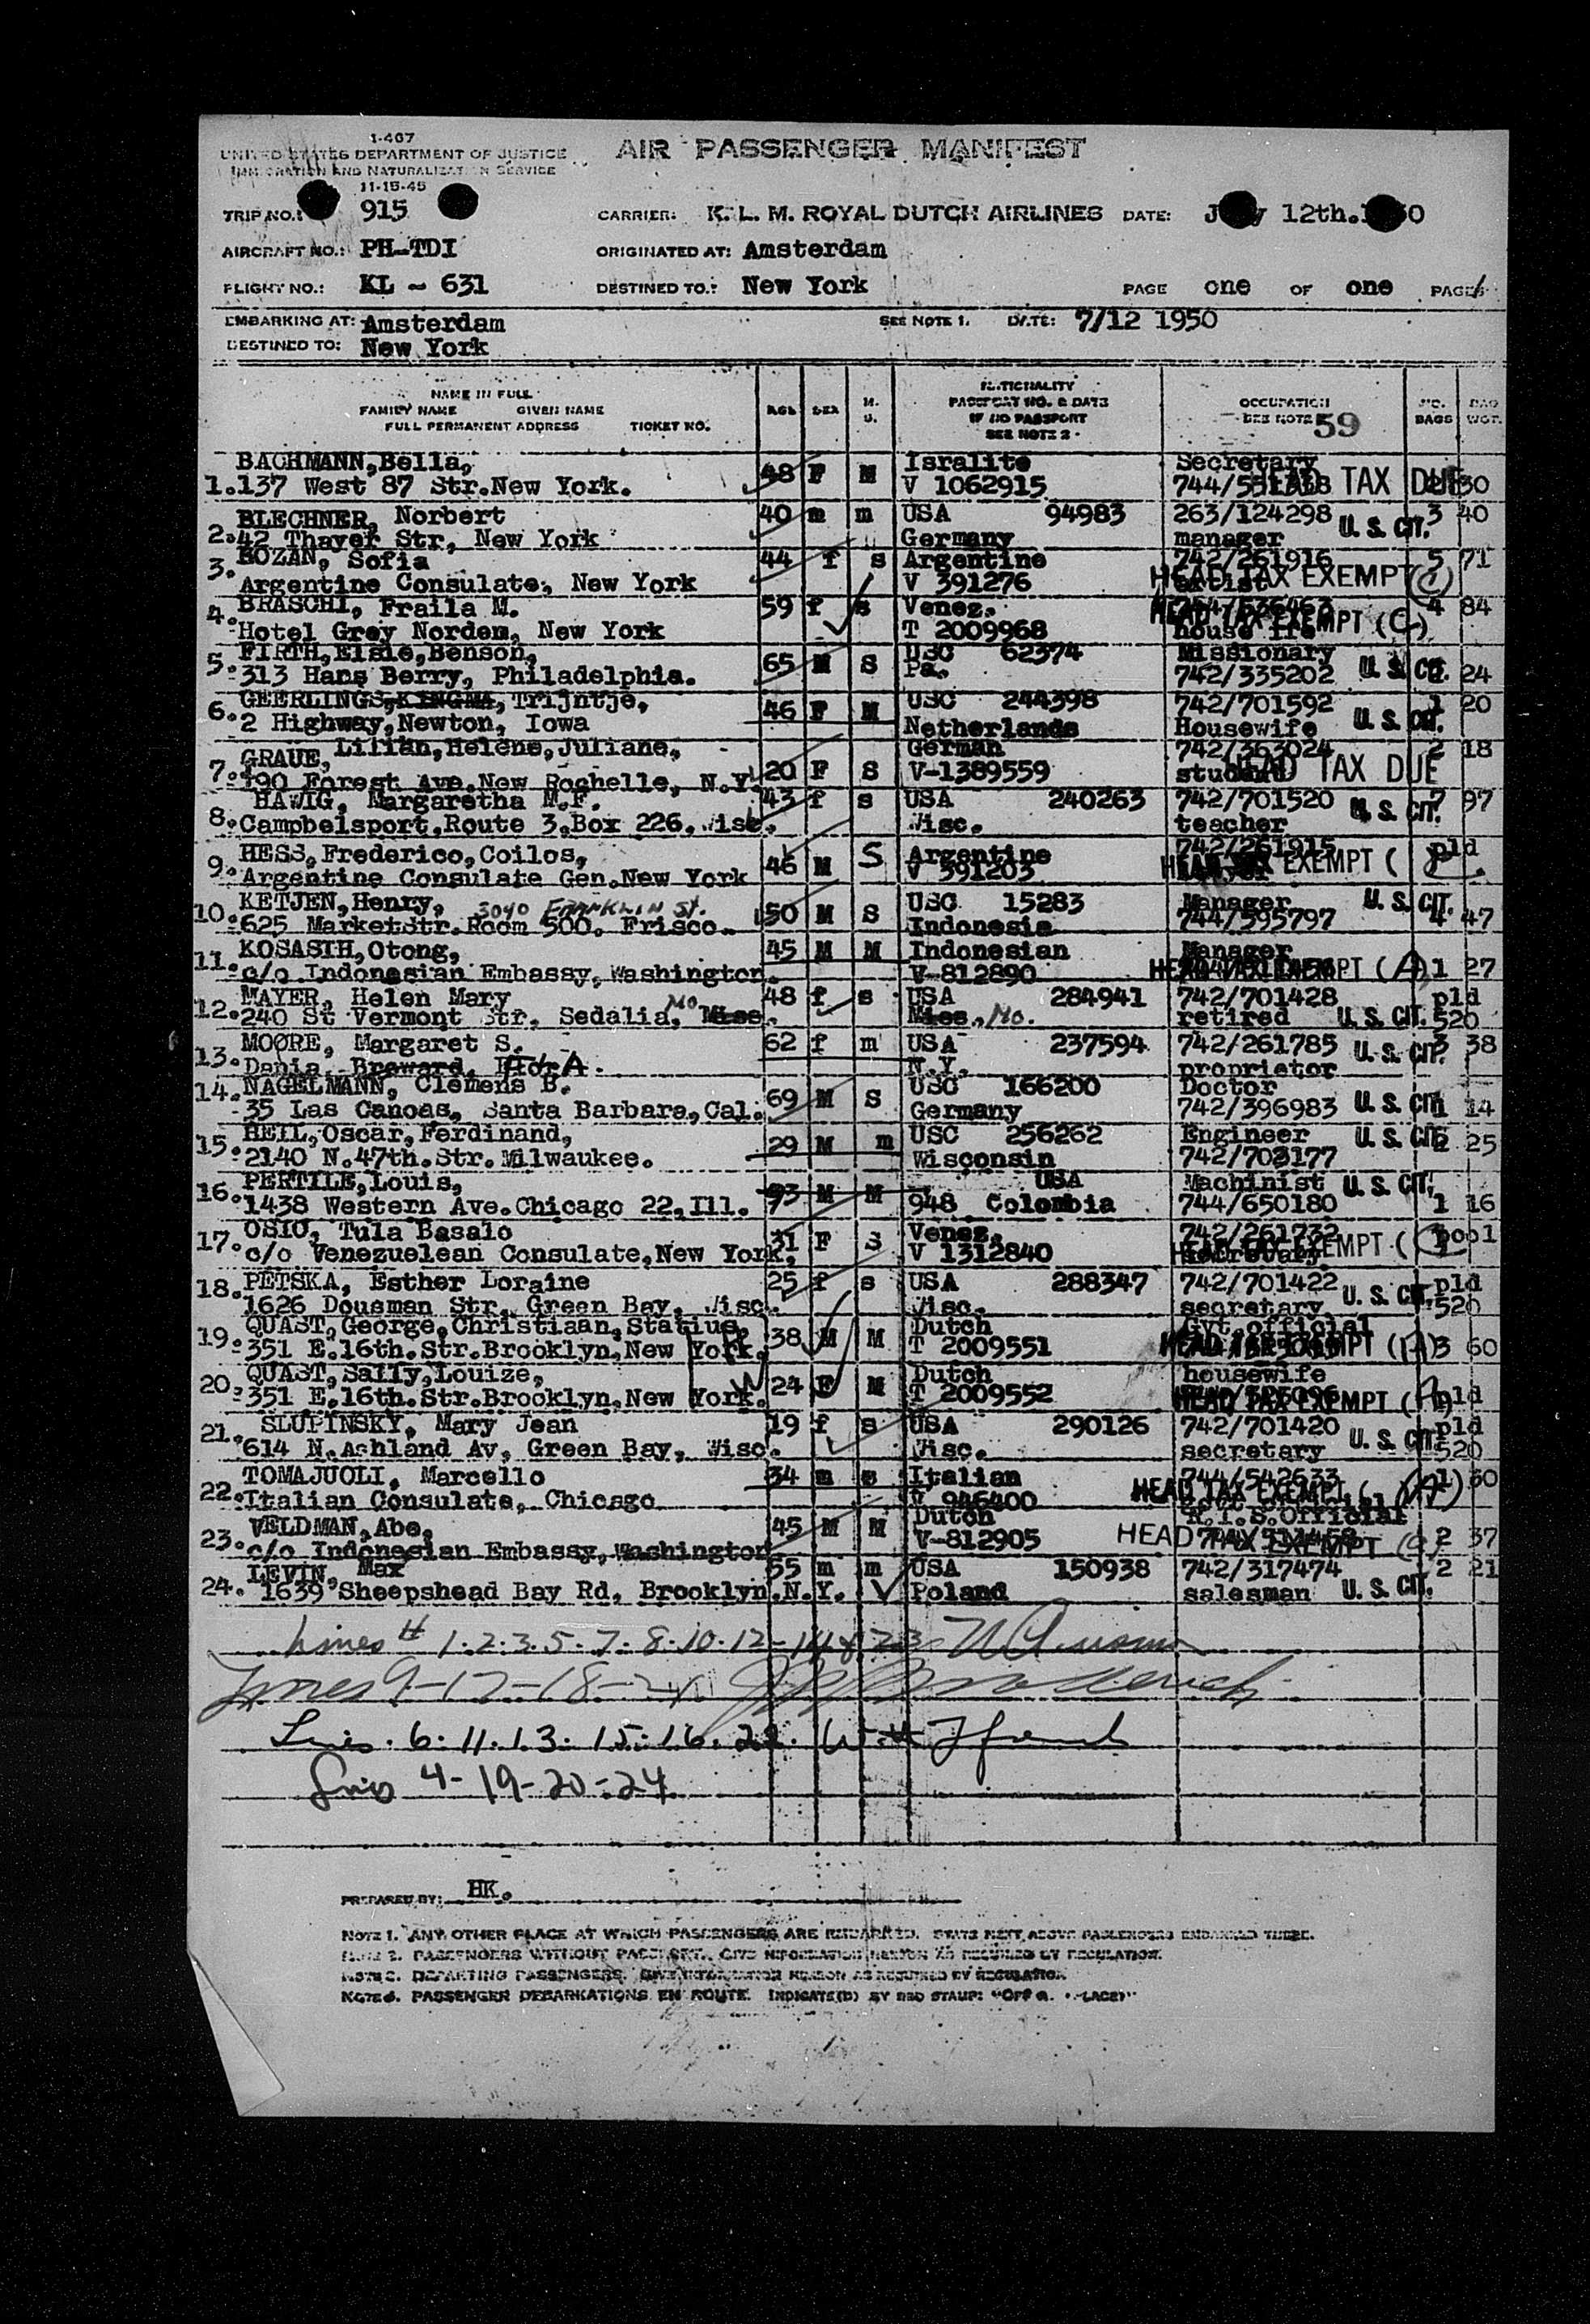 1-467
UNITED STATES DEPARTMENT OF JUSTICE
IMMIGRATION AND NATURALIZATION SERVICE
11-15-45
AIR PASSENGER MANIFEST
TRIP NO.: 915 CARRIER: K. L. M. ROYAL DUTCH AIRLINES DATE: 12th.
AIRCRAFT NO.: PH-TDI ORIGINATED AT: Amsterdam
FLIGHT NO.: KL - 631 DESTINED TO.: New York PAGE one OF one PAGES
EMBARKING AT: Amsterdam SEE NOTE 1. DATE: 7/12 1950
DESTINED TO: New York
NAME IN FULL
FAMILY NAME GIVEN NAME
FULL PERMANENT ADDRESS TICKET NO.
AGE SEX M. S.
NATIONALITY
PASSPORT NO. & DATE
IF NO PASSPORT
SEE NOTE 2
OCCUPATION
SEE NOTE 59
NO. BAGS BAG WGT.
BACHMANN, Bella, 48 F M Isralite Secretary
1. 137 West 87 Str. New York. V 1062915 HEAD TAX DUE 30
BLECHNER, Norbert 40 m m USA 94983 263/124298 U. S. CIT. 3 40
2. 42 Thayer Str, New York Germany manager
BOZAN, Sofia 44 f s Argentine 742/261916 5 71
3. Argentine Consulate, New York V 391276 HEAD TAX EXEMPT (C)
BRASCHI, Fraila M. 59 f s Venez. 4 84
4. Hotel Grey Norden, New York T 2009968 HEAD TAX EXEMPT (C)
FIRTH, Elsie, Benson, 65 M S USC 62374 Missionary
5. 313 Hans Berry, Philadelphia. Pa. 742/335202 U. S. CIT. 24
GEERLINGS, KINGMA, Trijntje, 46 F M USC 244398 742/701592 1 20
6. 2 Highway, Newton, Iowa Netherlands Housewife U. S. CIT.
GRAUE, Lilian, Helene, Juliane, 20 F S German 742/363024 2 18
7. 190 Forest Ave. New Rochelle, N.Y. V-1389559 student HEAD TAX DUE
HAWIG, Margaretha M.F. 43 f s USA 240263 742/701520 U. S. CIT. 7 97
8. Campbelsport, Route 3, Box 226, Wisc. Wisc. teacher
HESS, Frederico, Coilos, 46 M S Argentine 742/261915 pld
9. Argentine Consulate Gen. New York V 391203 HEAD TAX EXEMPT (
KETJEN, Henry, 3040 FRANKLIN ST. 50 M S USC 15283 Manager U. S. CIT.
10. 625 MarketStr. Room 500. Frisco. Indonesia 744/595797 4 47
KOSASIH, Otong, 45 M M Indonesian Manager
11. c/o Indonesian Embassy, Washington. V-812890 HEAD TAX EXEMPT (A) 1 27
MAYER, Helen Mary 48 f s USA 284941 742/701428 pld
12. 240 St Vermont Str, Sedalia, Miss. Mo Miss. Mo. retired U. S. CIT. 520
MOORE, Margaret S. 62 f m USA 237594 742/261785 U. S. CIT. 3 38
13. Dania, Broward, N.Y. proprietor
NAGELMANN, Clemens B. 69 M S USC 166200 Doctor
14. 35 Las Canoas, Santa Barbara, Cal. Germany 742/396983 U. S. CIT. 14
HEIL, Oscar, Ferdinand, 29 M m USC 256262 Engineer U. S. CIT. 2 25
15. 2140 N.47th.Str. Milwaukee. Wisconsin 742/703177
PERTILE, Louis, M M USA Machinist U. S. CIT.
16. 1438 Western Ave. Chicago 22, Ill. 948 Colombia 744/650180 1 16
OSIO, Tula Basalo 31 F S Venez. 742/261732 pool
17. c/o Venezuelean Consulate, New York. V 1312840 secretary HEAD TAX EXEMPT (
PETSKA, Esther Loraine 25 f s USA 288347 742/701422 pld
18. 1626 Dousman Str, Green Bay, Wisc. Wisc. secretary U. S. CIT. 520
QUAST, George, Christiaan, Statius, 38 M M Dutch Gvt. official
19. 351 E.16th.Str. Brooklyn, New York. T 2009551 HEAD TAX EXEMPT (A) 3 60
QUAST, Sally, Louize, 24 F M Dutch housewife
20. 351 E.16th.Str. Brooklyn, New York. T 2009552 HEAD TAX EXEMPT (A) pld
SLUPINSKY, Mary Jean 19 f s USA 290126 742/701420 pld
21. 614 N. Ashland Av, Green Bay, Wisc. Wisc. secretary U. S. CIT. 520
TOMAJUOLI, Marcello 34 m s Italian 744/542633 1 30
22. Italian Consulate, Chicago V 946400 HEAD TAX EXEMPT (A)
VELDMAN, Abe, 45 M M Dutch Official
23. c/o Indonesian Embassy, Washington V-812905 HEAD TAX EXEMPT 2 37
LEVIN, Max 55 m m USA 150938 742/317474 2 21
24. 1639 Sheepshead Bay Rd, Brooklyn. N.Y. Poland salesman U. S. CIT.
Lines # 1. 2. 3. 5. 7. 8. 10. 12 - 14 & 23
Lines 9-17-18-21
Lines. 6. 11. 13. 15. 16. 22.
Lines 4-19-20-24
PREPARED BY: HK.
NOTE 1. ANY OTHER PLACE AT WHICH PASSENGERS ARE EMBARKED. STATE NEXT ABOVE PASSENGERS EMBARKED THERE.
NOTE 2. PASSENGERS WITHOUT PASSPORT. GIVE INFORMATION HEREON AS REQUIRED BY REGULATION.
NOTE 3. DEPARTING PASSENGERS. GIVE INFORMATION HEREON AS REQUIRED BY REGULATION
NOTE 4. PASSENGER DEBARKATIONS EN ROUTE. INDICATE(D) BY RED STAMP: "OFF @ PLACE)"